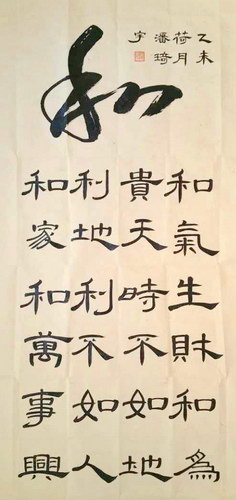 和
和氣生財和為
貴天時不如地
利地利不如人
和家和萬事興
乙未
荷月
潘琦
字